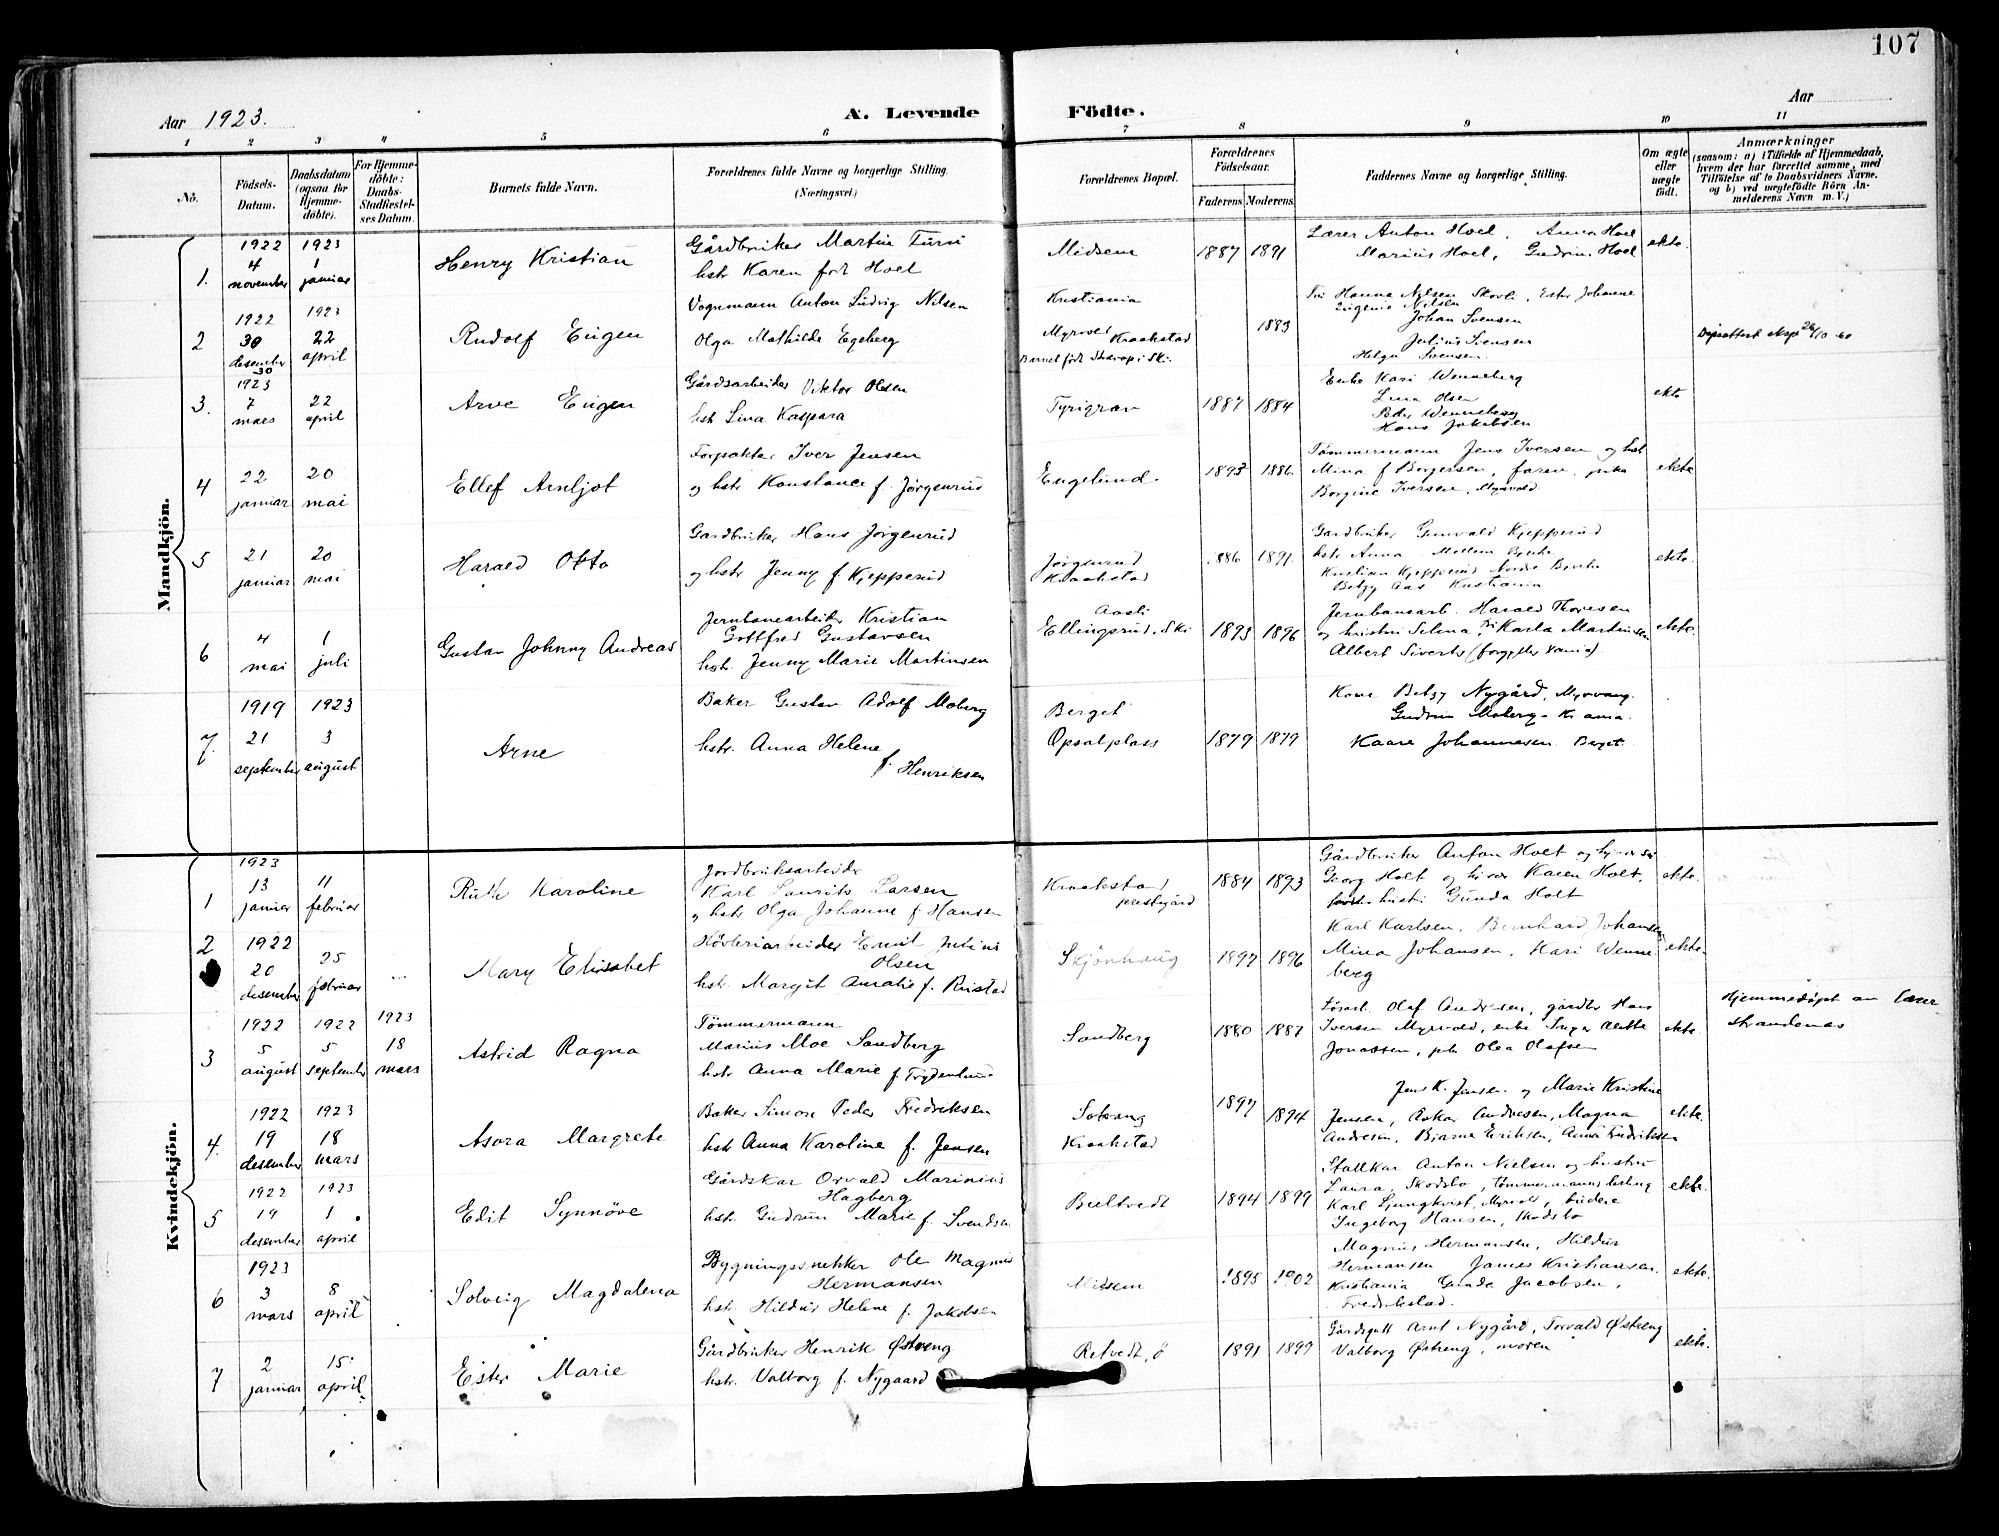 107
Aar 1923.
A. Levende Födte.
Aar
1 2 3 4 5 6 7 8 9 10 11
No.
Födsels-Datum.
Daabsdatum (ogsaa for Hjemmedöbte).
For Hjemmedöbte: Daabs-Stadfæstelses Datum.
Barnets fulde Navn.
Forældrenes fulde Navne og borgerlige Stilling. (Næringsvei.)
Forældrenes Bopæl.
Forældrenes Födselsaar.
Faderens. Moderens.
Faddernes Navne og borgerlige Stilling.
Om ægte eller uægte født.
Anmærkninger (saasom: a) i Tilfælde af Hjemmedaab, hvem der har forrettet samme, med Tilföielse af to Daabsvidners Navne. og b) ved uægtefödte Börn Anmelderens Navn m. V.)
Mandkjön.
1. 1922 4 november 1923 1 januar Henry Kristian
Gårdbruker Martin Turi
hstr Karen født Hoel
Midsem 1887 1891
Lærer Anton Hoel, Anna Hoel
Marius Hoel, Gudrun Hoel
ekte.
2 1922 30 desember 1923 22 april Rudolf Eugen
Vognmann Anton Ludvig Nilsen
Olga Mathilde Egeberg
Kristiania
Myrvold Kraakstad
Barnet født i Ski.
1883
Hanna Nilsen Ester Johanne
Eugenie Nilsen
Johan Svensen
Julius Svensen
Helga Svensen.
3. 1923 7 mars 22 april Arve Eugen
Gårdsarbeider Viktor Olsen
hstr Lina Kaspara
Tyrigrav 1887 1884
Enke Kari Wenneberg
Lina Olsen
Peder Wenneberg
Hans Jakobsen
ekte
4 22 januar 20 mai Ellef Arnljot
Forpakter Iver Jensen
og hstr Konstance f. Jørgenrud
Engelund. 1893 1886.
Tømmermann Jens Iversen og hstr
Mina f Borgersen, faren, pike
Borgine Iversen, Myrvold.
ekte
5 21 januar 20 mai Harald Otto
Gardbruker Hans Jørgenrud
og hstr Jenny f. Kjepperud
Jørgenrud
Kraakstad
1886 1891.
Gardbruker Gunvald Kjepperud
hstr Anna
Kristian Kjepperud Nordre
Betzy Aas Kristiania
ekte.
6 4 mai 1 juli Gustav Johnny Andreas
Jernbanearbeider Kristian
Gottfred Gustavsen
hstr. Jenny Marie Martinsen
Aasli
Ellingsrud, Ski 1893 1896
Jernbanearb. Harald Thoresen
og hustru Selma, Karla Martinsen
Albert Siverts
ekte.
7. 1919 21 september 1923 3 august Arne
Baker Gustav Adolf Moberg
hstr. Anna Helene
f. Henriksen
Berget
Opsalplass 1879 1879
Kone Betzy Nygård, Myrvang.
Gudrun Moberg - Kr.ania.
Kaare Johannesen Berget.
Kvindekjön.
1 1923 13 januar 11 februar Ruth Karoline
Jordbruksarbeider
Karl Laurits Larsen
og hstr Olga Johanne f. Hansen
Kraakstad
prestegård
1884 1893
Gårdbruker Anton Holt og
Georg Holt og Karen Holt.
hustru Gunda Holt
ekte.
2 1922 20 desember 25 februar Mary Elisabet
Høvleriarbeider Emil Julius
Olsen
hstr. Margit Amalie f. Ristad
Skjønhaug 1897 1896
Karl Karlsen, Bernhard Johansen
Mina Johansen, Kari Wenneberg
ekte.
3 1922 5 august 1922 5 september 1923 18 mars Astrid Ragna
Tømmermann
Marius Moe Sandberg
hstr Anna Marie f. Frydenlund
Sandberg 1880 1887
Løsarb. Olaf Andresen, gårdbr Hans
Iversen Myrvold, enke Inger Alette
Jonassen, pike Olea Olafsen
ekte.
Hjemmedøpt av lærer
Strandenæs
4. 1922 19 desember 1923 18 mars Asora Margrete
Baker Simon Peder Fredriksen
hstr Anna Karoline f. Jensen
Solvang
Kraakstad
1897 1894
Jens K. Jensen og Marie Kristine
Jensen, Askar Andresen, Magna
Andresen, Bjarne Eriksen, Anna Fredriksen
ekte.
5 1922 19 desember 1923 1 april Edit Synnöve
Gårdskar Orvald Marinius
Hagberg
hstr. Gudrun Marie f. Svendsen
Bultvedt 1894 1899
Stallkar Anton Nielsen og hustru
Laura, Skodsbo, tømmermannslærling
Karl Ljungkvist, Myrvold, budeie
Ingeborg Hansen, Skodsbo
ekte.
6 1923 3 mars 8 april Solveig Magdalena
Bygningssnekker Ole Magnus
Hermansen
hstr. Hildur Helene f. Jakobsen
Midsem 1895 1902
Magnus Hermansen, Hildur
Hermansen James Kristiansen.
Kristiania Gunda Jacobsen,
Fredrikstad.
ekte.
7 2 januar 15 april Ester Marie
Gårdbruker Henrik Østreng
hstr. Valborg f. Nygaard
Retvedt, ö 1891 1899
Gårdsgutt Arnt Nygård, Torvald Østreng
Valborg Østreng, moren
ekte.